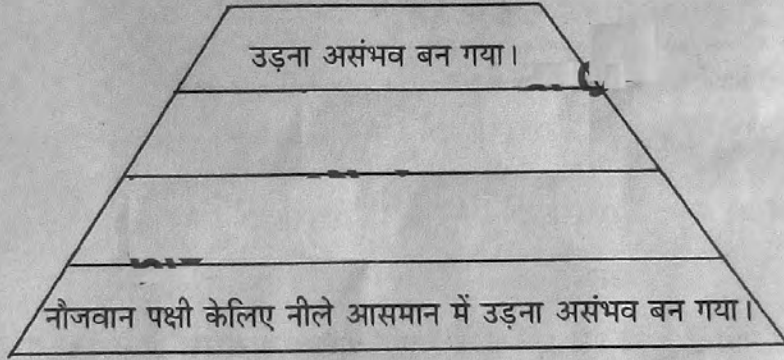 उड़ना असंभव बन गया।
नौजवान पक्षी केलिए नीले आसमान में उड़ना असंभव बन गया।